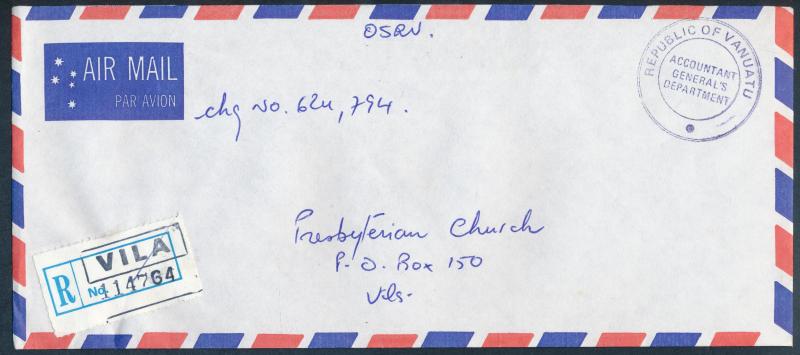 OSRV.
AIR MAIL
PAR AVION
REPUBLIC OF VANUATU
ACCOUNTANT
GENERAL'S
DEPARTMENT
chq No. 624,794.
Presbyterian Church
P.O. Box 150
Vila
VILA
R No. 114764